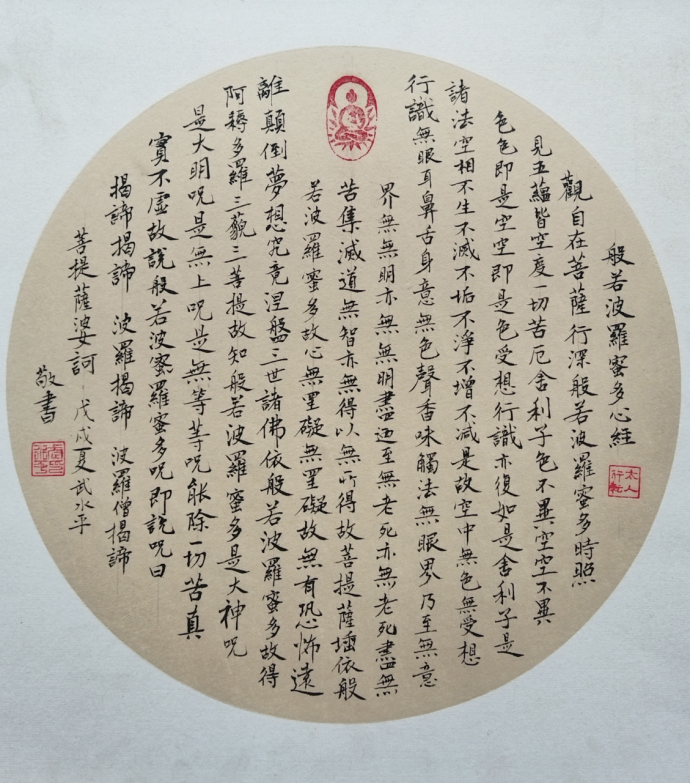 般若波羅蜜多心経
觀自在菩薩行深般若波羅蜜多時照
見五蘊皆空度一切苦厄舍利子色不異空空不異
色色即是空空即是色受想行識亦復如是舍利子是
諸法空相不生不滅不垢不淨不增不減是故空中無色無受想
行識無眼耳鼻舌身意無色聲香味觸法無眼界乃至無意
界無無明亦無無明盡迺至無老死亦無老死盡無
苦集滅道無智亦無得以無所得故菩提薩埵依般
若波羅蜜多故心無罣礙無罣礙故無有恐怖遠
離顛倒夢想究竟涅盤三世諸佛依般若波羅蜜多故得
阿耨多羅三藐三菩提故知般若波羅蜜多是大神呪
是大明呪是無上呪是無等等呪能除一切苦真
實不虛故說般若波蜜羅蜜多呪即說呪曰
揭諦揭諦 波羅揭諦 波羅僧揭諦
菩提薩婆訶 戊戌夏武水平
敬書